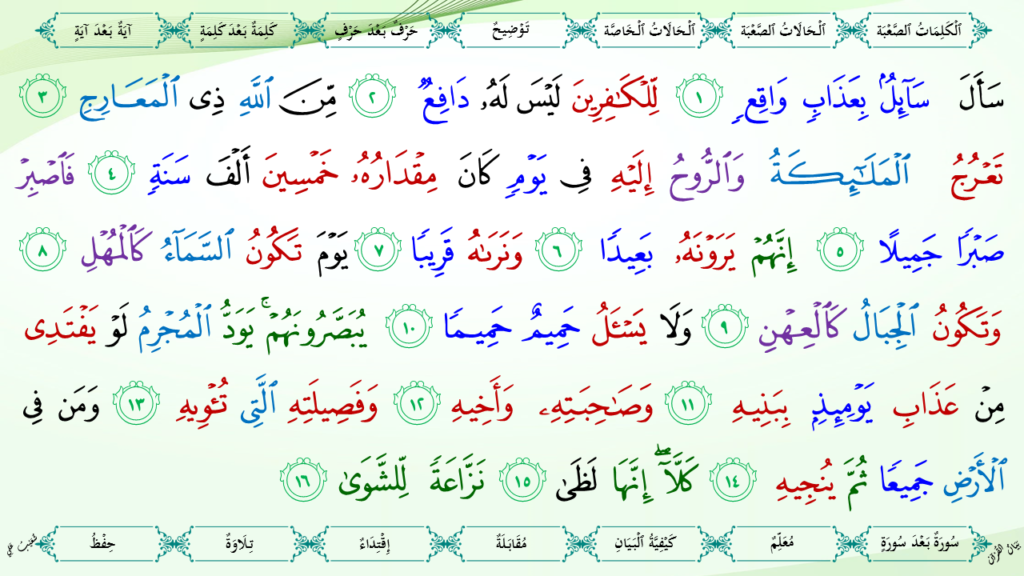 اَلْكَلِمَاتُ الصَّعْبَة اَلْحَالَاتُ الصَّعْبَة اَلْحَالَاتُ الْخَاصَّة تَوْضِيحٌ حَرْفٌ بَعْدَ حَرْفٍ كَلِمَةٌ بَعْدَ كَلِمَةٍ آيَةٌ بَعْدَ آيَةٍ
سَأَلَ سَآئِلُۢ بِعَذَابٖ وَاقِعٖ ١ لِّلۡكَٰفِرِينَ لَيۡسَ لَهُۥ دَافِعٞ ٢ مِّنَ ٱللَّهِ ذِي ٱلۡمَعَارِجِ ٣
تَعۡرُجُ ٱلۡمَلَٰٓئِكَةُ وَٱلرُّوحُ إِلَيۡهِ فِي يَوۡمٖ كَانَ مِقۡدَارُهُۥ خَمۡسِينَ أَلۡفَ سَنَةٖ ٤ فَٱصۡبِرۡ
صَبۡرٗا جَمِيلًا ٥ إِنَّهُمۡ يَرَوۡنَهُۥ بَعِيدٗا ٦ وَنَرَىٰهُ قَرِيبٗا ٧ يَوۡمَ تَكُونُ ٱلسَّمَآءُ كَٱلۡمُهۡلِ ٨
وَتَكُونُ ٱلۡجِبَالُ كَٱلۡعِهۡنِ ٩ وَلَا يَسۡـَٔلُ حَمِيمٌ حَمِيمٗا ١٠ يُبَصَّرُونَهُمۡۚ يَوَدُّ ٱلۡمُجۡرِمُ لَوۡ يَفۡتَدِي
مِنۡ عَذَابِ يَوۡمِئِذِۭ بِبَنِيهِ ١١ وَصَٰحِبَتِهِۦ وَأَخِيهِ ١٢ وَفَصِيلَتِهِ ٱلَّتِي تُـٔۡوِيهِ ١٣ وَمَن فِي
ٱلۡأَرۡضِ جَمِيعٗا ثُمَّ يُنجِيهِ ١٤ كَلَّآۖ إِنَّهَا لَظَىٰ ١٥ نَزَّاعَةٗ لِّلشَّوَىٰ ١٦
سُورَةٌ بَعْدَ سُورَةٍ مُعَلِّمٌ كَيْفِيَّةُ الْبَيَانِ مُقَابَلَةٌ إِقْتِدَاءٌ تِلَاوَةٌ حِفْظٌ